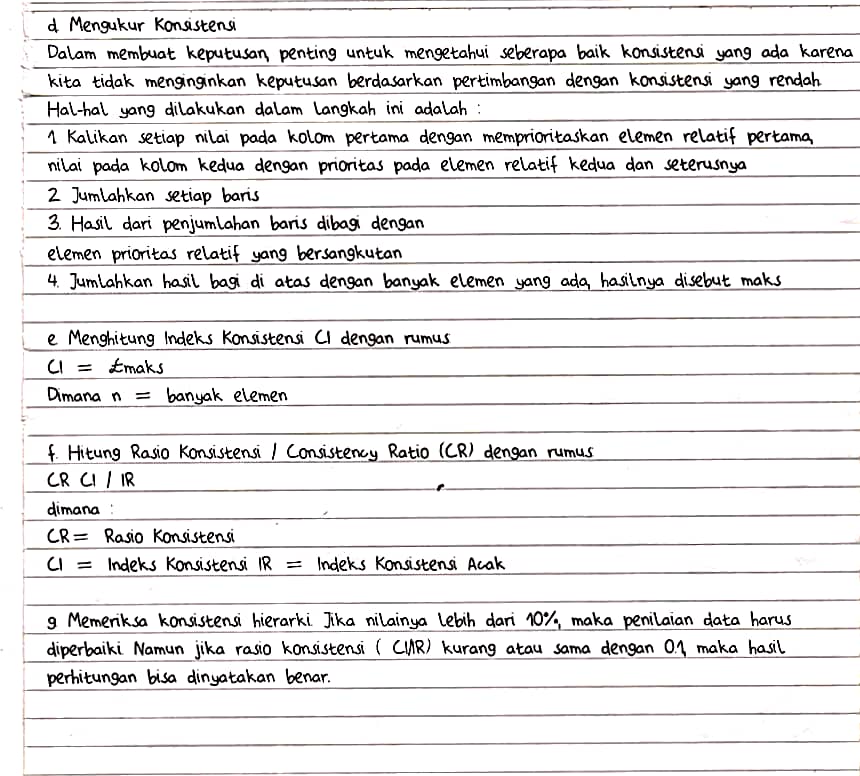 d Mengukur Konsistensi
Dalam membuat keputusan, penting untuk mengetahui seberapa baik konsistensi yang ada karena
kita tidak menginginkan keputusan berdasarkan pertimbangan dengan konsistensi yang rendah
Hal-hal yang dilakukan dalam langkah ini adalah :
1 Kalikan setiap nilai pada kolom pertama dengan memprioritaskan elemen relatif pertama,
nilai pada kolom kedua dengan prioritas pada elemen relatif kedua dan seterusnya
2 Jumlahkan setiap baris
3. Hasil dari penjumlahan baris dibagi dengan
elemen prioritas relatif yang bersangkutan
4. Jumlahkan hasil bagi di atas dengan banyak elemen yang ada, hasilnya disebut maks
e Menghitung Indeks Konsistensi CI dengan rumus
CI = £maks
Dimana n = banyak elemen
f. Hitung Rasio Konsistensi / Consistency Ratio (CR) dengan rumus
CR CI / IR
dimana :
CR = Rasio Konsistensi
CI = Indeks Konsistensi IR = Indeks Konsistensi Acak
g Memeriksa konsistensi hierarki. Jika nilainya lebih dari 10%, maka penilaian data harus
diperbaiki Namun jika rasio konsistensi ( CI/IR) kurang atau sama dengan 0.1, maka hasil
perhitungan bisa dinyatakan benar.